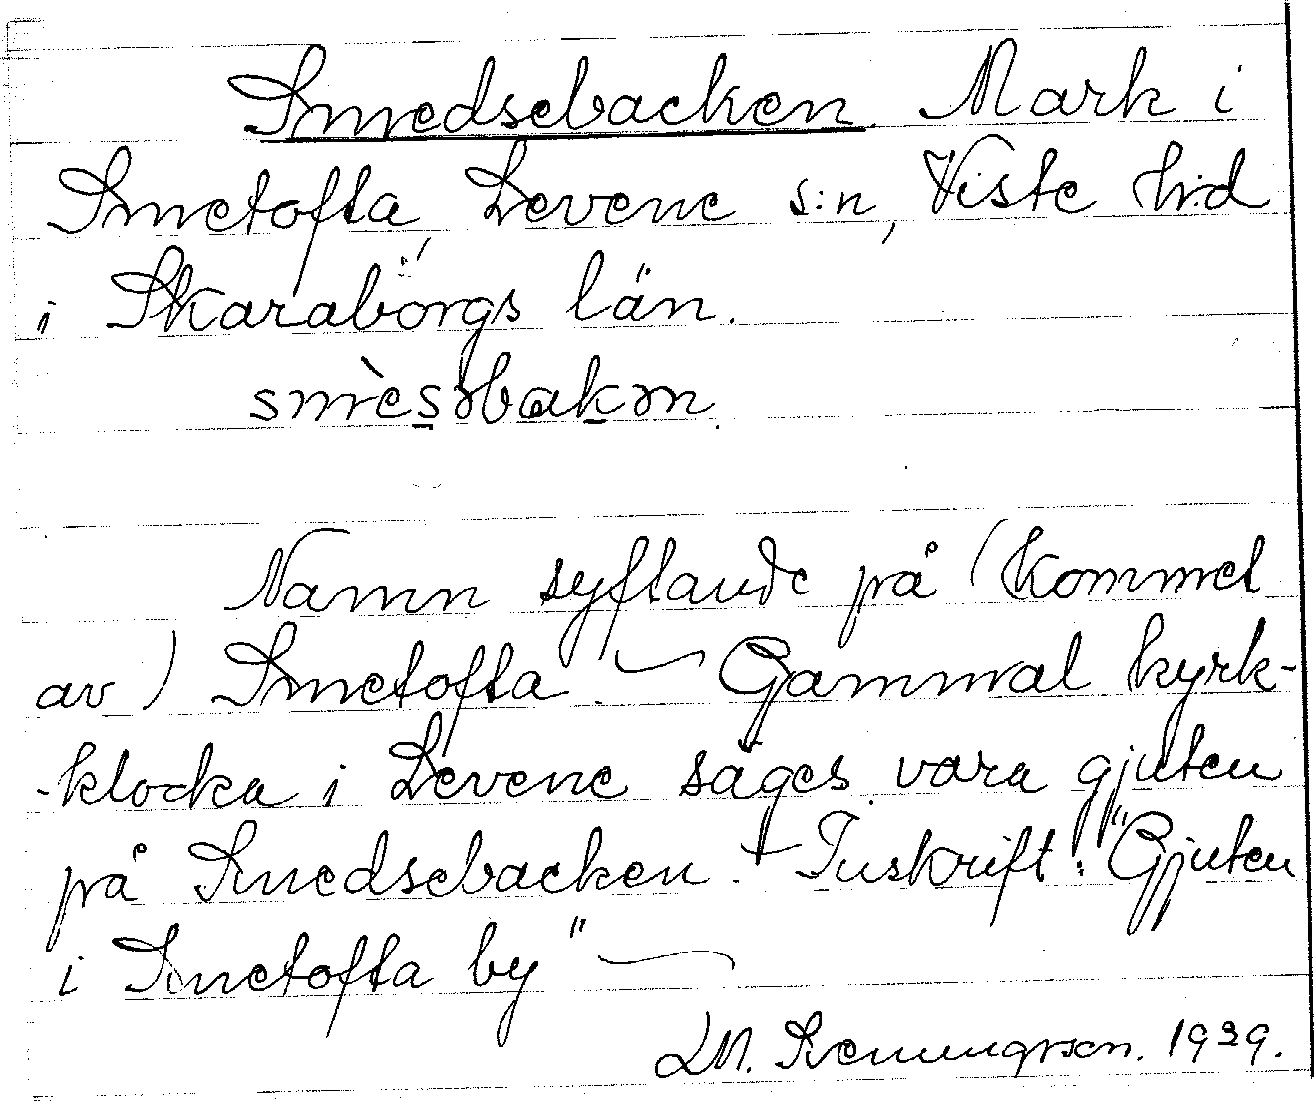 Smedsebacken. Mark i
Smetofta, Levene s:n, Viste h:d
i Skaraborgs län.
smèsəbakən.
Namn syftande på (kommet
av) Smetofta. — Gammal kyrk-
-klocka i Levene säges vara gjuten
på Smedsebacken. — Inskrift: "Gjuten
i Smetofta by" —
1939.